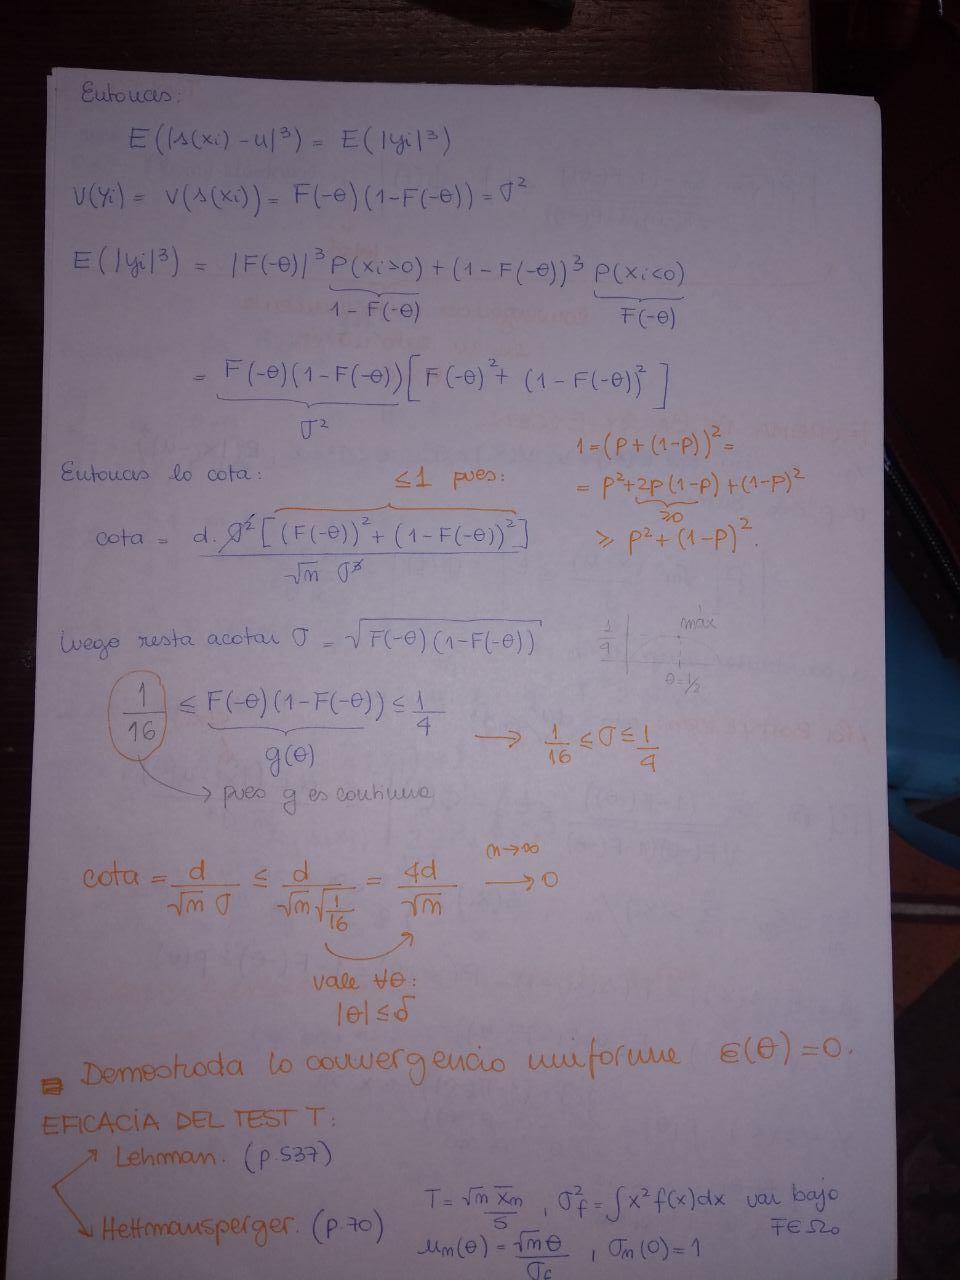 Entonces:
E(|s(xi) - u|³) = E(|yi|³)
V(yi) = V(s(xi)) = F(-θ)(1-F(-θ)) = σ²
E(|yi|³) = |F(-θ)|³ P(xi>0) + (1-F(-θ))³ P(xi<0)
1-F(-θ) F(-θ)
= F(-θ)(1-F(-θ)) [F(-θ)² + (1-F(-θ))²]
σ²
1 = (p+(1-p))² =
= p²+2p(1-p)+(1-p)²
≥0
≥ p²+(1-p)².
Entonces la cota: ≤1 pues:
cota = d. σ² [(F(-θ))² + (1-F(-θ))²]
√n σ³
luego resta acotar σ = √F(-θ)(1-F(-θ))
1/4 máx
θ=1/2
1/16 ≤ F(-θ)(1-F(-θ)) ≤ 1/4
g(θ)
→ 1/16 ≤ σ ≤ 1/4
→ pues g es continua
cota = d/√n σ ≤ d/√n √1/16 = 4d/√n n→∞ → 0
vale ∀θ:
|θ| ≤ δ
Demostrada la convergencia uniforme ε(θ) = 0.
EFICACIA DEL TEST T:
Lehman. (p.537)
Hettmansperger. (p.70)
T = √n x̄n/S , σ²f = ∫x² f(x)dx var bajo
F∈Ω₀
μn(θ) = √n θ/σf , σn(0) = 1